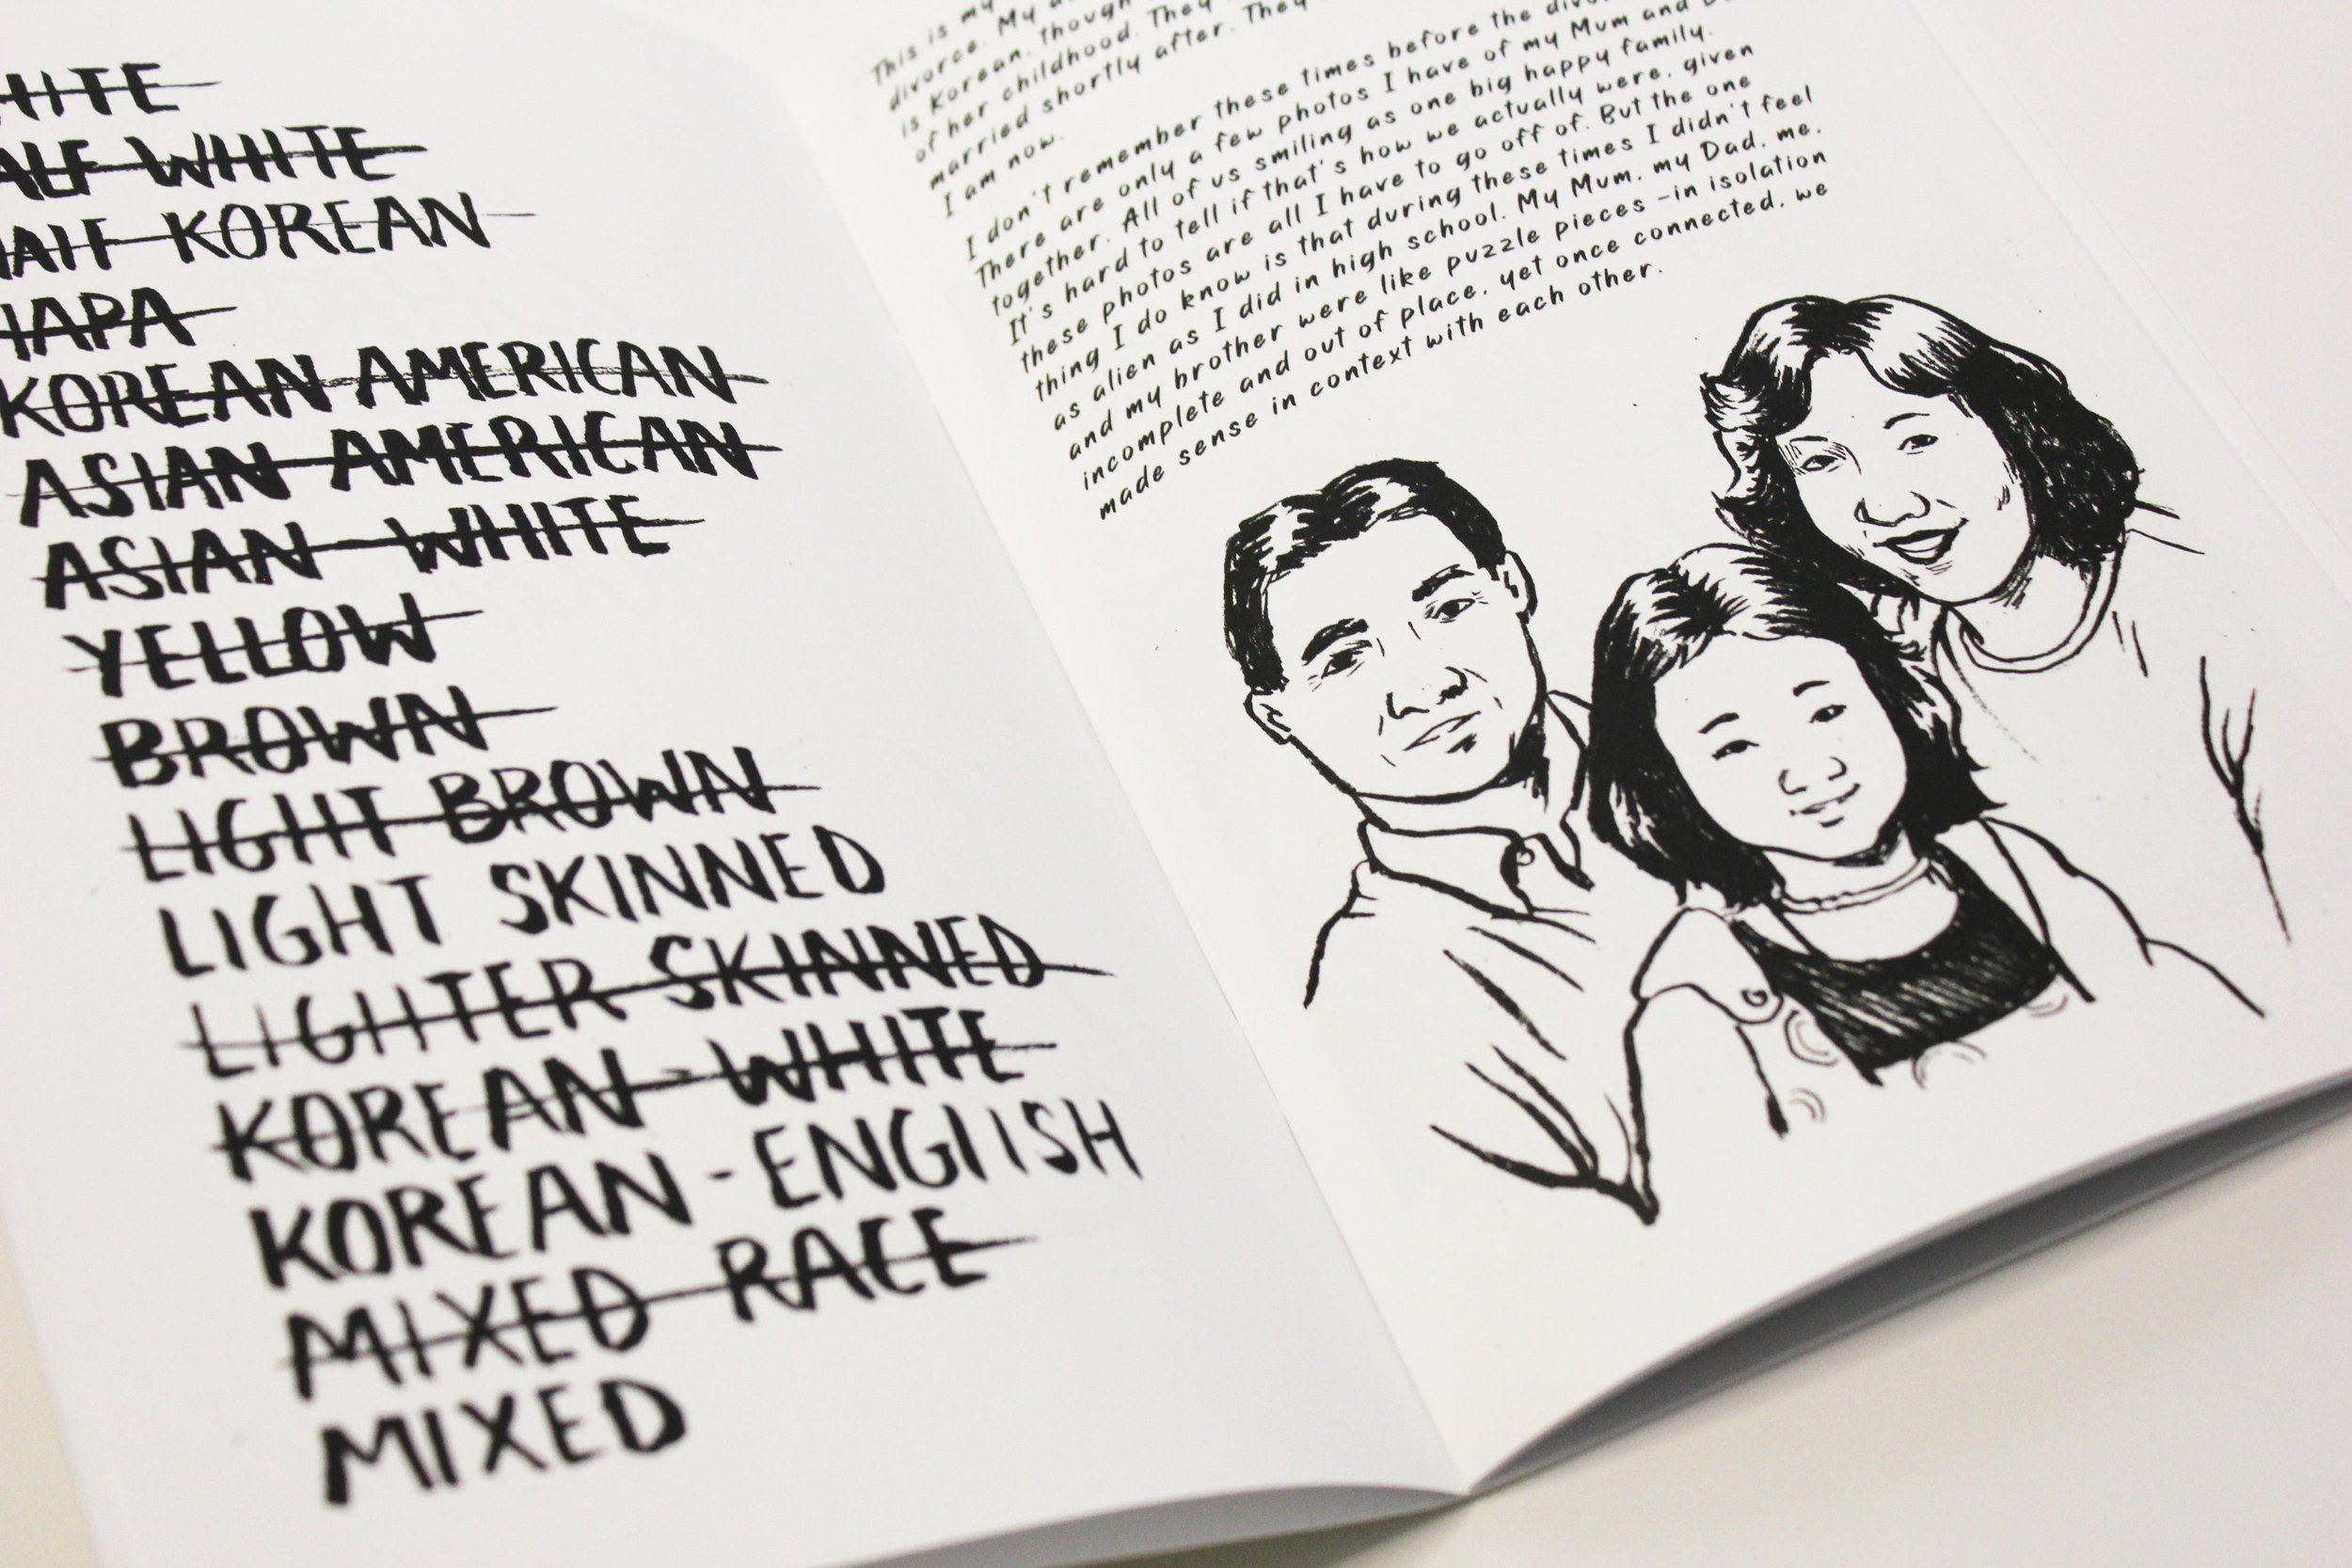 HITE
ALF WHITE
HALF KOREAN
HAPA
KOREAN AMERICAN
ASIAN AMERICAN
ASIAN - WHITE
YELLOW
BROWN
LIGHT BROWN
LIGHT SKINNED
LIGHTER SKINNED
KOREAN - WHITE
KOREAN - ENGLISH
MIXED RACE
MIXED
This is my
divorce. My
is Korean, though
of her childhood. They
married shortly after. They
I am now.
I don't remember these times before the
There are only a few photos I have of my Mum and
together. All of us smiling as one big happy family.
It's hard to tell if that's how we actually were, given
these photos are all I have to go off of. But the one
thing I do know is that during these times I didn't feel
as alien as I did in high school. My Mum, my Dad, me,
and my brother were like puzzle pieces -in isolation
incomplete and out of place, yet once connected, we
made sense in context with each other.